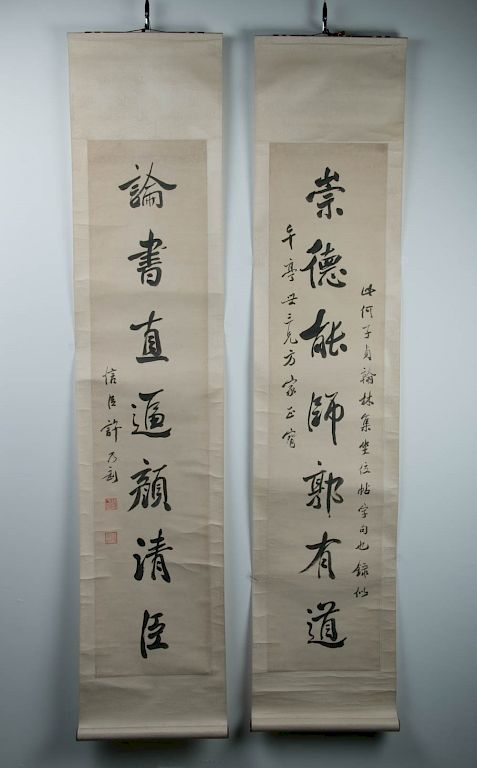 此何子貞翰林集坐位帖字句也錄似
崇德能師郭有道
午亭世三兄方家正腕
論書直逼顏清臣
信臣許乃釗